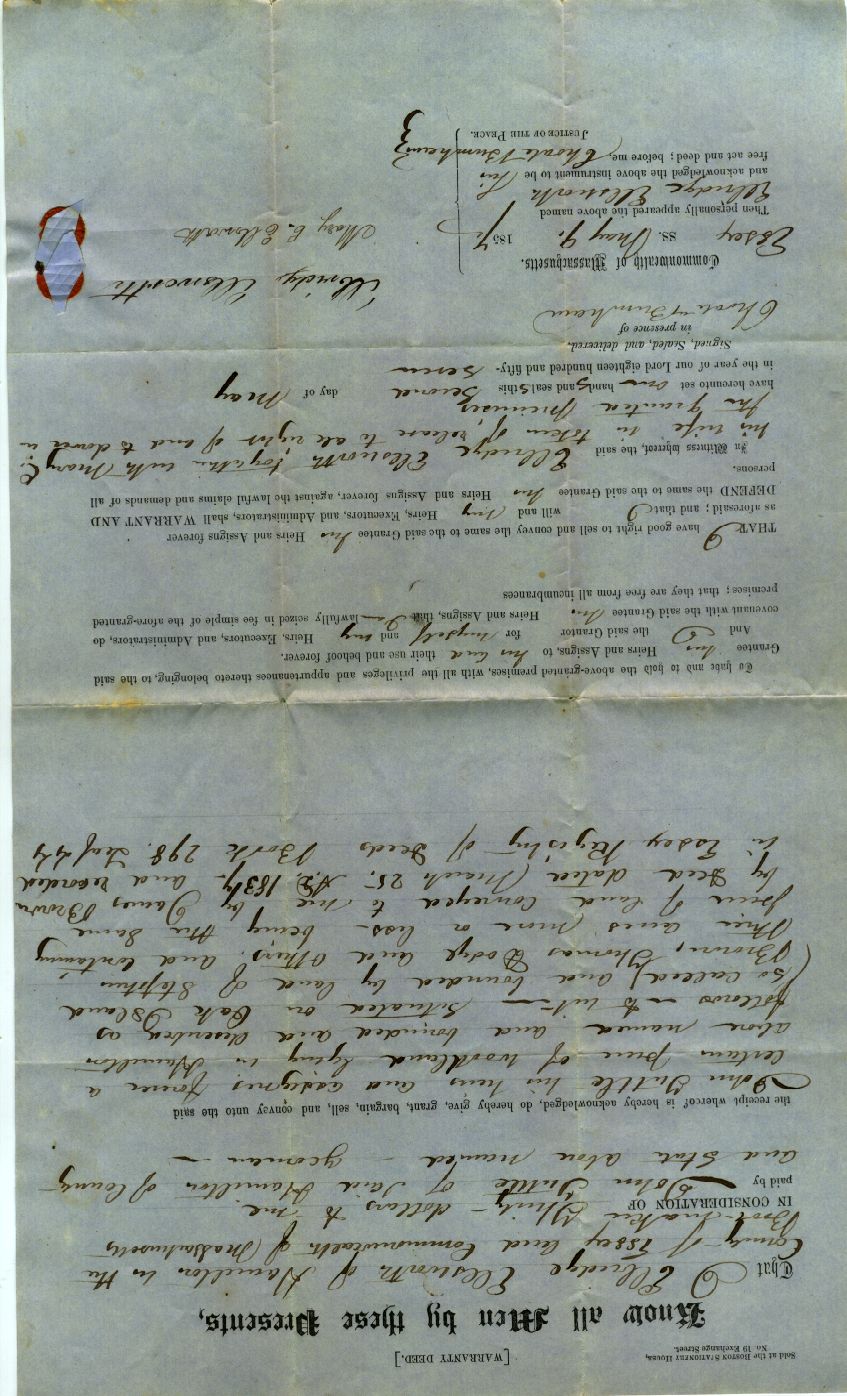 Sold at the BOSTON STATIONERY HOUSE,
No. 19 Exchange Street.
[WARRANTY DEED.]
Know all Men by these Presents,
That I Elbridge Ellsworth of Hamilton in the
County of Essex and Commonwealth of Massachusetts
IN CONSIDERATION OF Thirty dollars to me
paid by John Tuttle of said Hamilton of County
and State above named yeoman
the receipt whereof is hereby acknowledged, do hereby give, grant, bargain, sell, and convey unto the said
John Tuttle his heirs and assignes forever a
certain piece of woodland lying in Hamilton
above named and bounded and described as
follows to wit situated on Oak Island
(so called) and bounded by land of Stephen
Brown, Thomas Dodge and others. and containing
three acres more or less being the same
piece of land conveyed to me by James Brown
by Deed dated March 25. A.D. 1834 and recorded
in Essex Registry of Deeds Book 298. Leaf 44
To have and to hold the above-granted premises, with all the privileges and appurtenances thereto belonging, to the said
Grantee his Heirs and Assigns, to his and their use and behoof forever.
And I the said Grantor for myself and my Heirs, Executors, and Administrators, do
covenant with the said Grantee his Heirs and Assigns, that I am lawfully seized in fee simple of the afore-granted
premises; that they are free from all incumbrances
THAT I have good right to sell and convey the same to the said Grantee his Heirs and Assigns forever
as aforesaid; and that I will and my Heirs, Executors, and Administrators, shall WARRANT AND
DEFEND the same to the said Grantee his Heirs and Assigns forever, against the lawful claims and demands of all
persons.
In Witness whereof, the said Elbridge Ellsworth together with Mary E.
his wife in token of release to all rights of and to dower in
the granted premises
have hereunto set our hands and seals this second day of May
in the year of our Lord eighteen hundred and fifty-seven
Signed, Sealed, and delivered,
in presence of
Choate Burnham
Elbridge Ellsworth
Mary E. Ellsworth
Commonwealth of Massachusetts.
Essex ss. May 9. 1857.
Then personally appeared the above named
Elbridge Ellsworth
and acknowledged the above instrument to be his
free act and deed; before me,
Choate Burnham
JUSTICE OF THE PEACE.